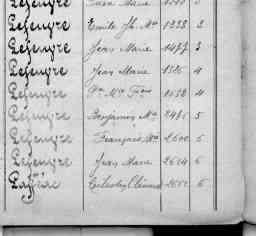 Lefeuvre Jean Marie 5
Lefeuvre Emile Jh. Mie 1238 2
Lefeuvre Jean Marie 1477 3
Lefeuvre Jean Marie 1526 4
Lefeuvre Pre Mie Fçois 2038 4
Lefeuvre Benjamin Mie 2481 5
Lefeuvre François Mie 2600 5
Lefeuvre Jean Marie 2624 6
Celestin 6